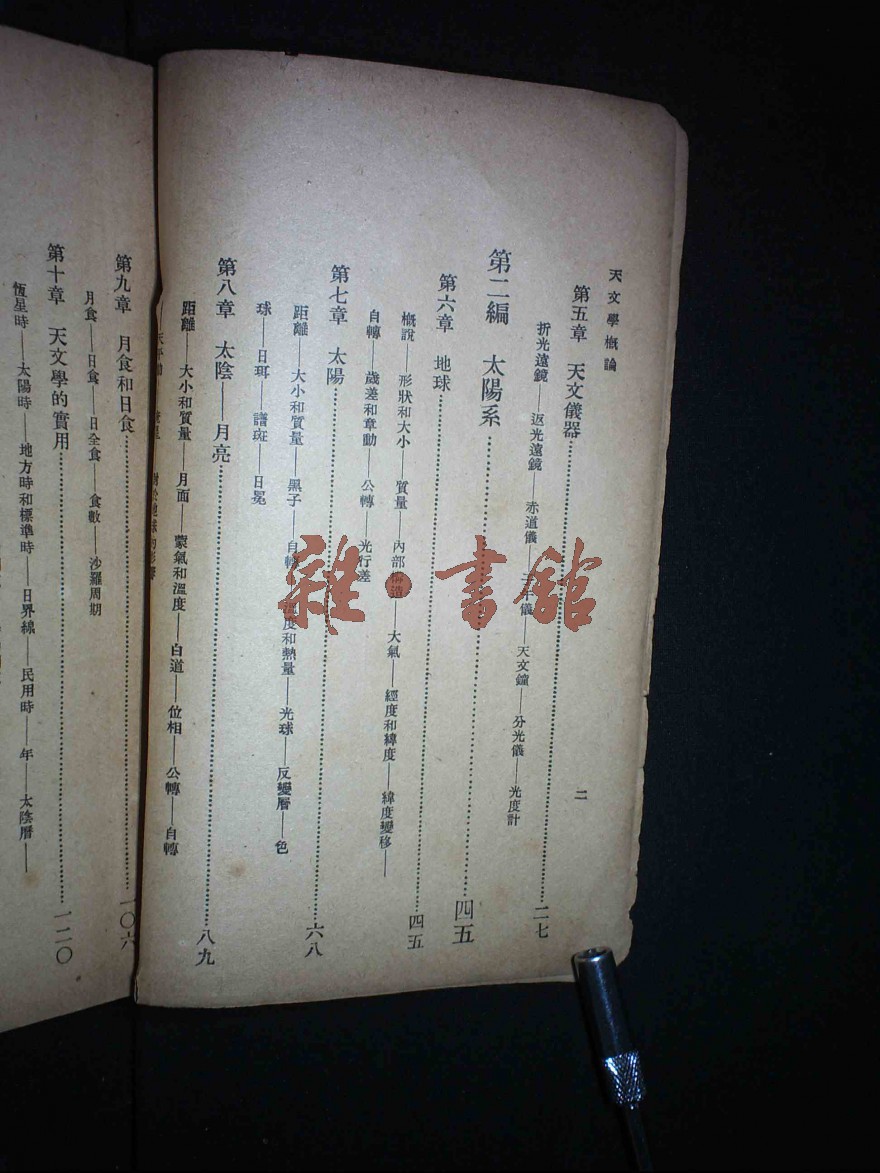 天文學槪論
二
第五章 天文儀器……二七
折光遠鏡——返光遠鏡——赤道儀——子午儀——天文鐘——分光儀——光度計
第二編 太陽系……四五
第六章 地球……四五
槪說——形狀和大小——質量——內部構造——大氣——經度和緯度——緯度變移——
自轉——歲差和章動——公轉——光行差
第七章 太陽……六八
距離——大小和質量——黑子——自轉——溫度和熱量——光球——反變層——色
球——日珥——譜斑——日冕
第八章 太陰——月亮……八九
距離——大小和質量——月面——蒙氣和溫度——白道——位相——公轉——自轉
對於地球的影響
第九章 月食和日食……一〇六
月食——日食——日全食——食數——沙羅周期
第十章 天文學的實用……一二〇
恆星時——太陽時——地方時和標準時——日界線——民用時——年——太陰曆——
雜·書館